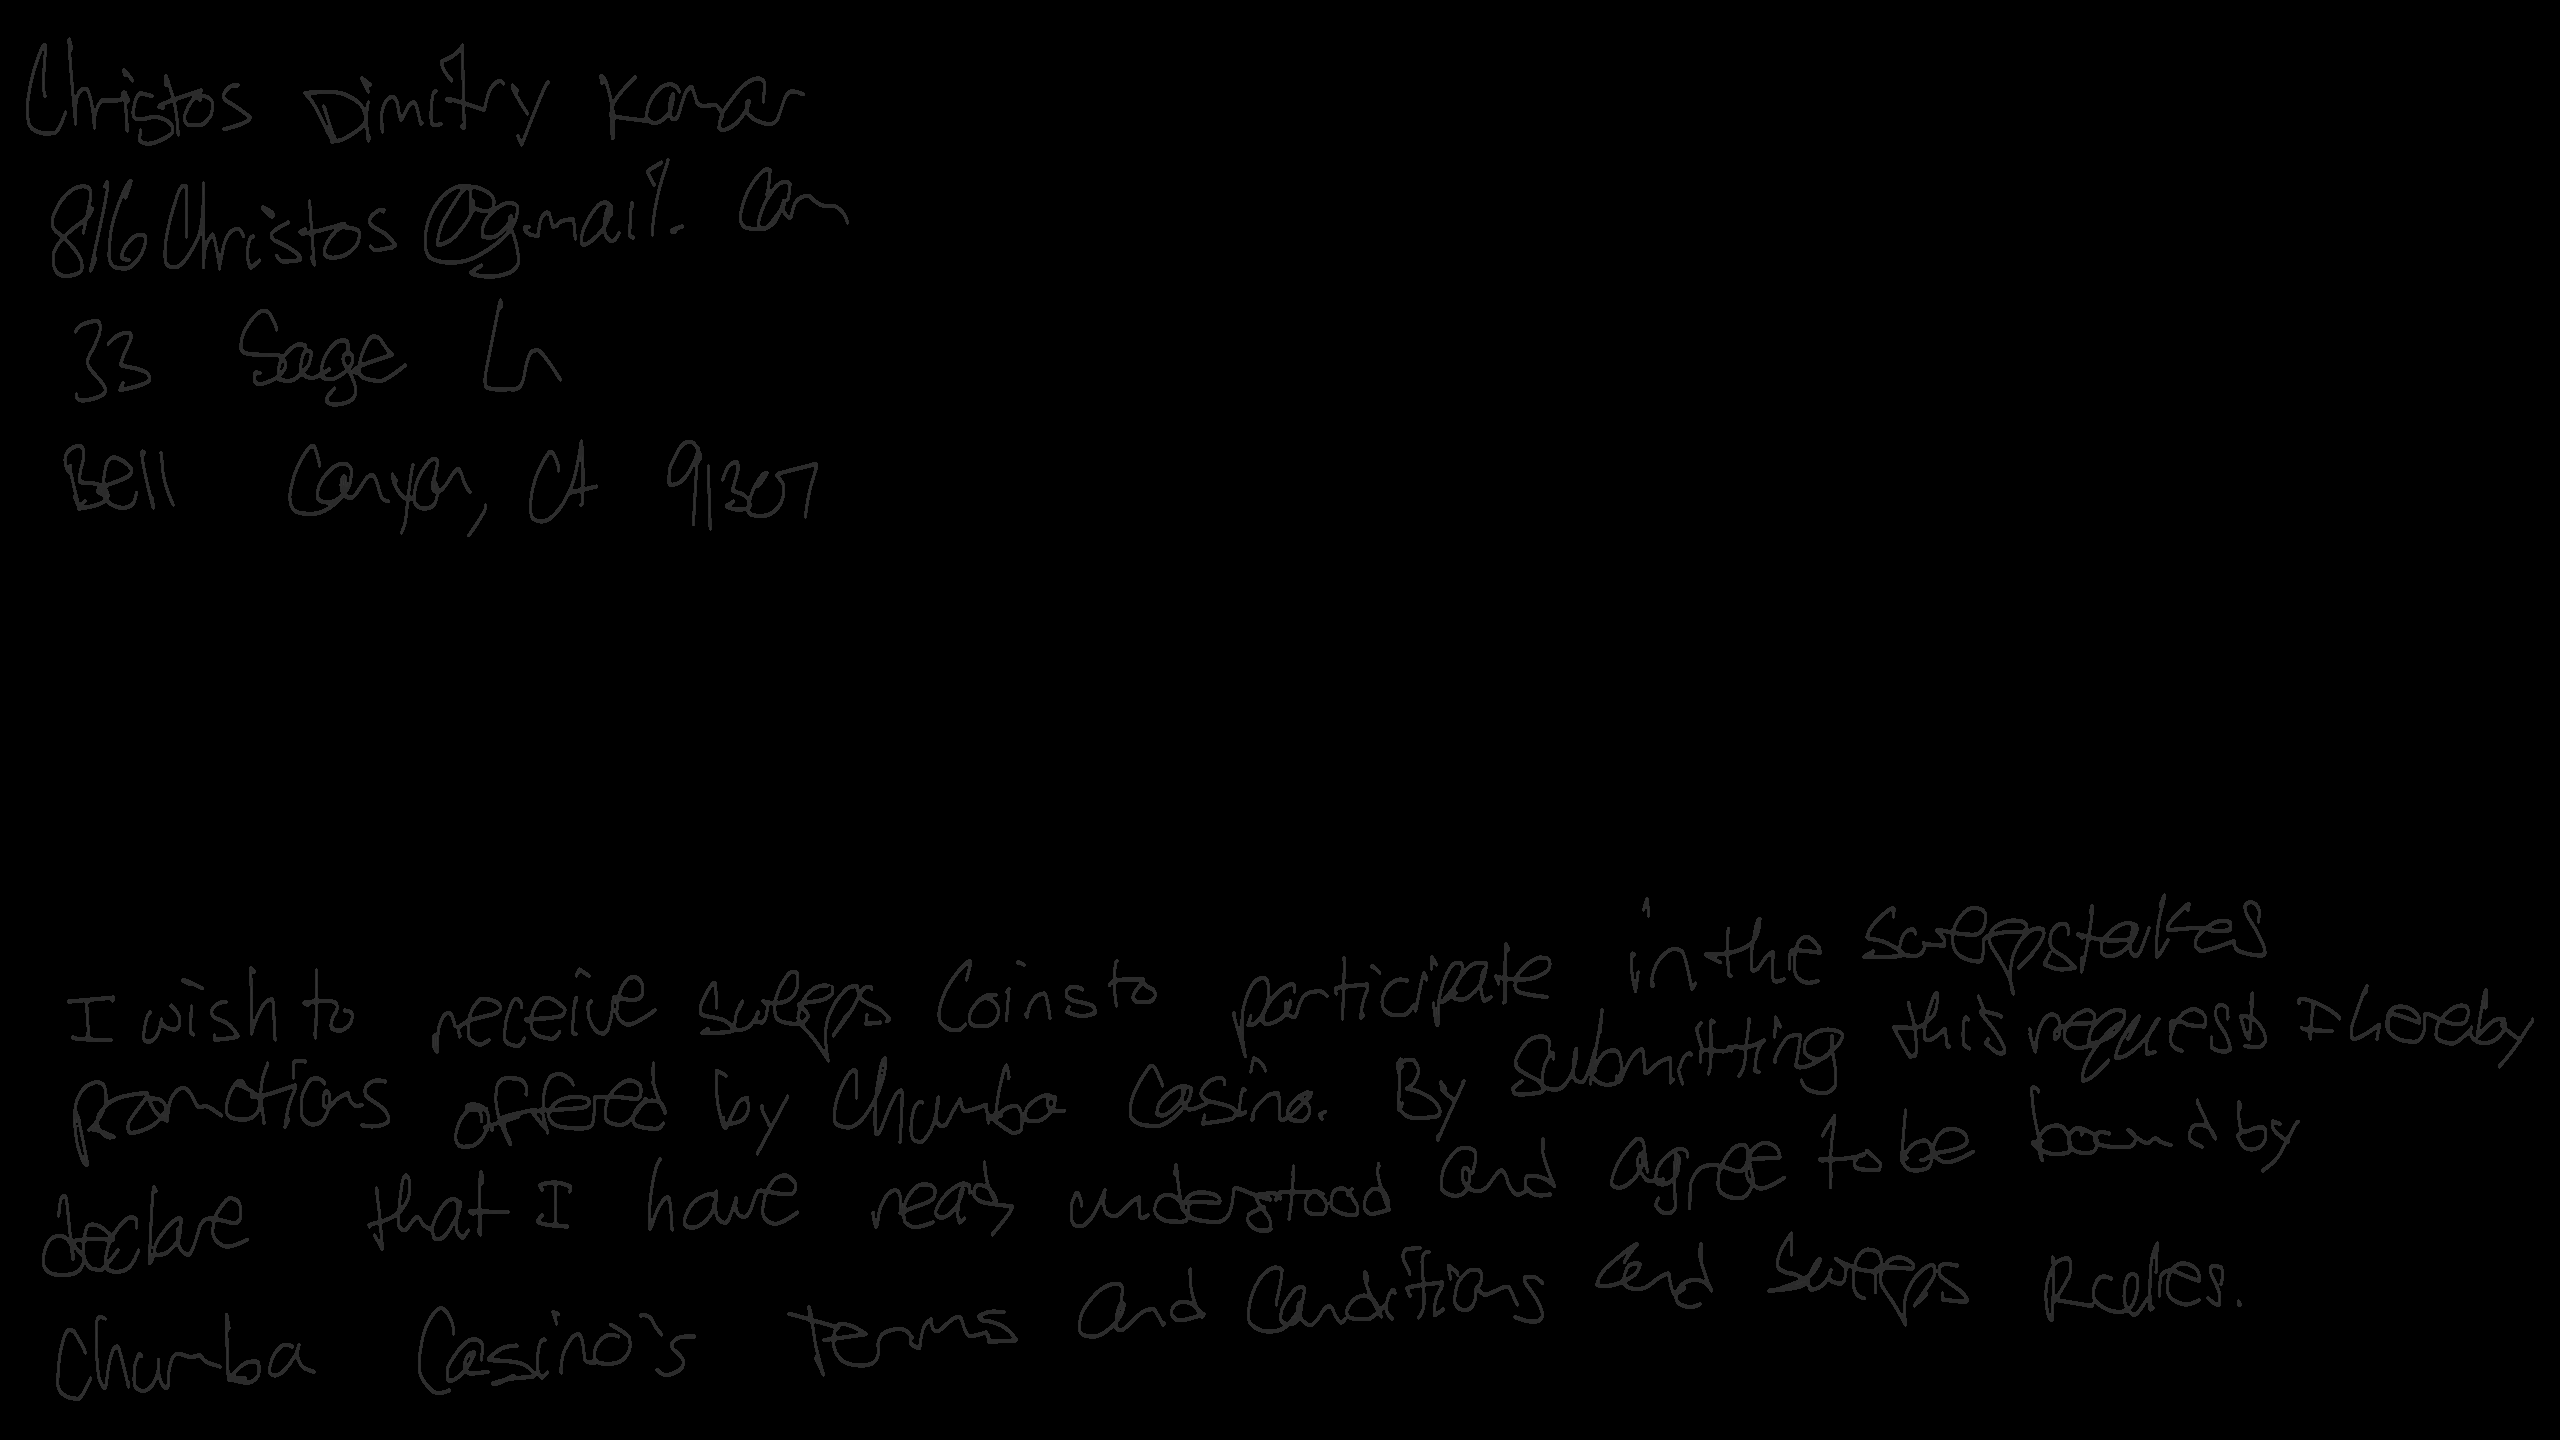 Christos Dimitry Kamar
816Christos@gmail.com
33 Sage Ln
Bell Canyon, CA 91307
I wish to receive sweeps Coins to participate in the sweepstakes
promotions offered by Chumba Casino. By submitting this request I hereby
declare that I have read, understood and agree to be bound by
Chumba Casino's Terms and Conditions and Sweeps Rules.